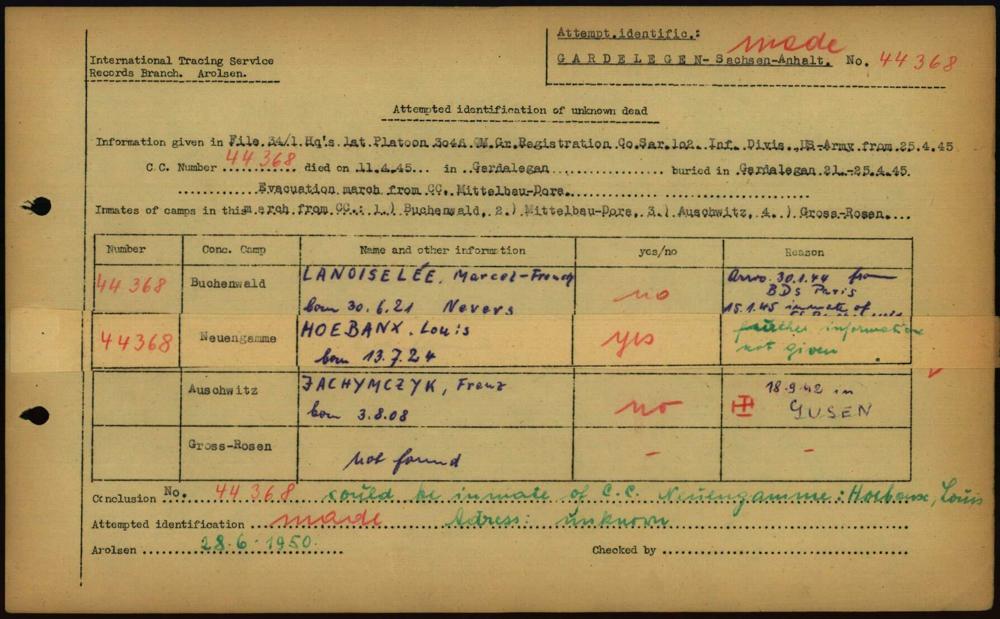 Attempt.identific.:
made
International Tracing Service
GARDELEGEN-Sachsen-Anhalt. No. 44368
Records Branch. Arolsen.
Attempted identification of unknown dead
Information given in File 34/1 Hq's 1st Platoon 3o46 QM.Gr.Registration Co.Sar.1o2. Inf. Divis.,US-Army from 25.4.45
C.C. Number 44368 died on 11.4.45 in Gardelegan buried in Gardelegan 21.-25.4.45
Evacuation march from CC. Mittelbau-Dora.
Inmates of camps in this march from CC.: 1.) Buchenwald, 2.) Mittelbau-Dora, 3.) Auschwitz, 4.) Gross-Rosen.
Number Conc. Camp Name and other information yes/no Reason
44368 Buchenwald LANOISELÉE, Marcel- no Arrv. 30.1.44 from
BDS Paris
born 30.6.21 Nevers 15.1.45 inmate of
44368 Neuengamme HOEBANX, Louis yes further information
born 13.7.24 not given
Auschwitz JACHYMCZYK, Franz no 18.9.42 in
born 3.8.08 GUSEN
Gross-Rosen not found - -
Conclusion No. 44368 could be inmate of C.C. Neuengamme: Hoebanx, Louis
Attempted identification made Adress: unknown
Arolsen 28.6.1950. Checked by